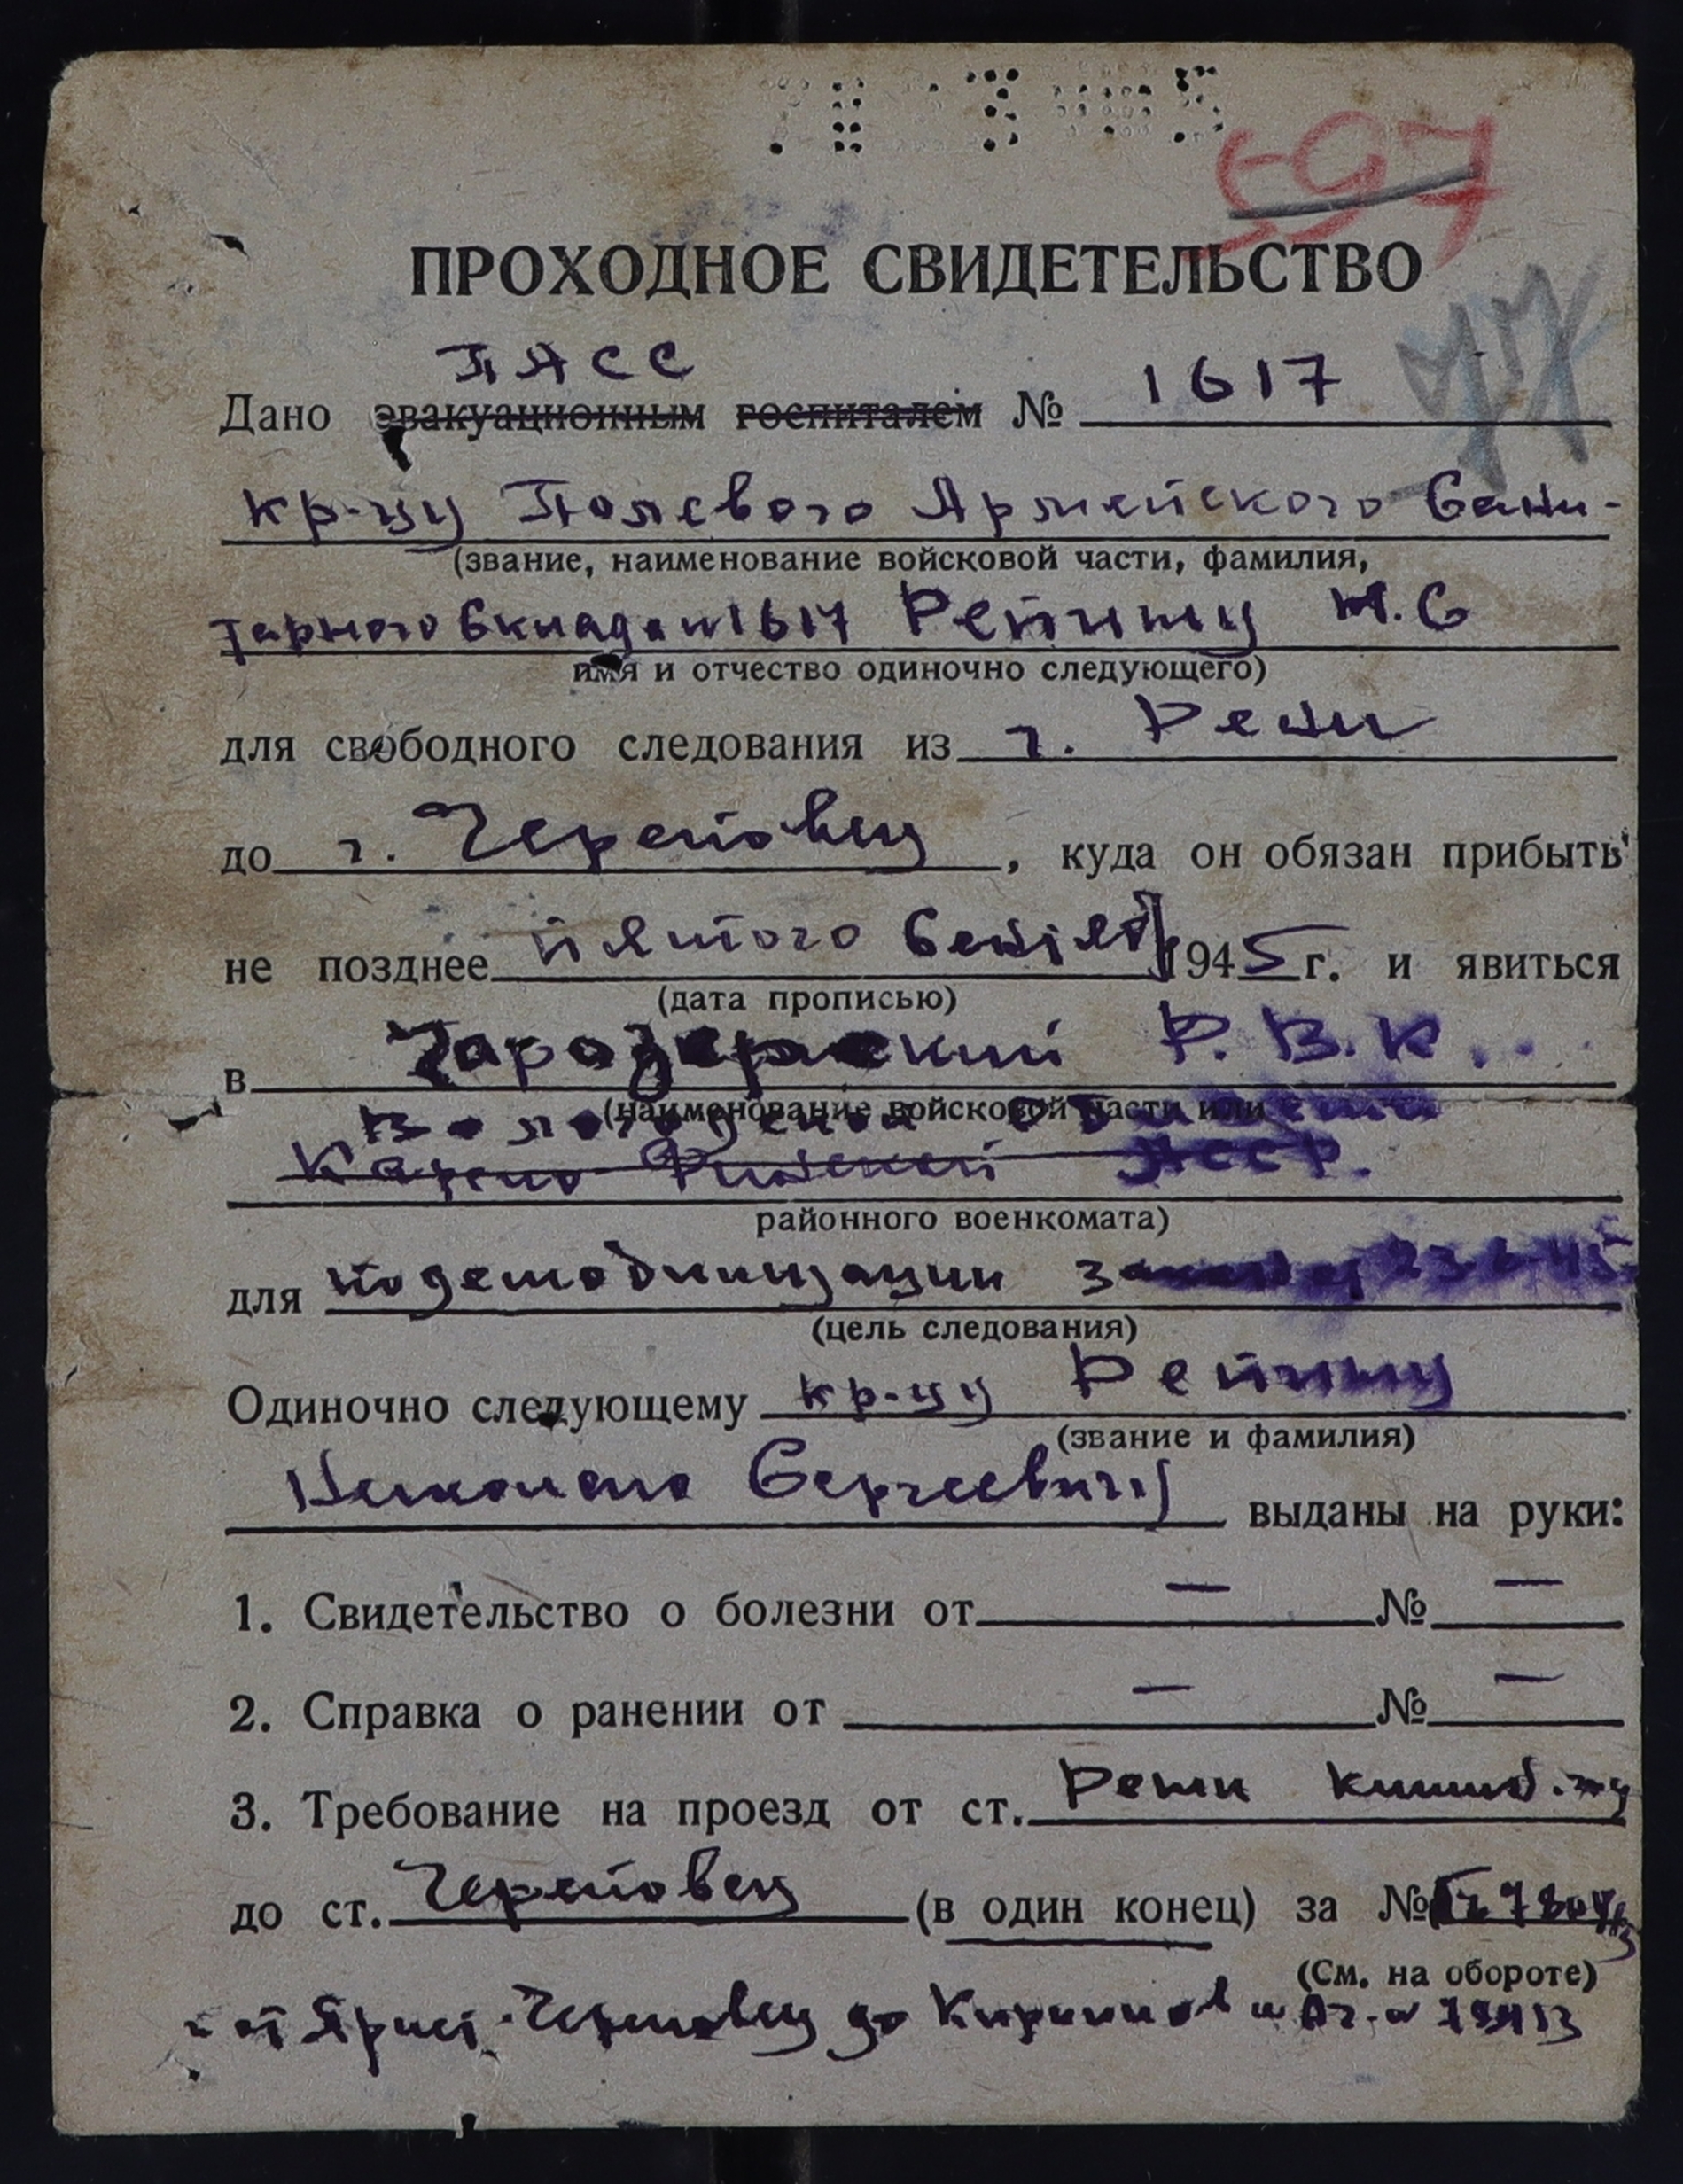 597
ПРОХОДНОЕ СВИДЕТЕЛЬСТВО
77
ПАСС
Дано эвакуационным госпиталем № 1617
кр-цу Полевого Армейского Сани-
(звание, наименование войсковой части, фамилия,
тарного Склада №1617 Репину Н.С
имя и отчество одиночно следующего)
для свободного следования из г. Рени
до г. Череповец, куда он обязан прибыть
не позднее пятого Сентяб 1945 г. и явиться
(дата прописью)
в Чарозерский Р.В.К.
(наименование войсковой части или
Вологодской области
Карело Финской АССР.
районного военкомата)
для по демобилизации 23 6 45
(цель следования)
Одиночно следующему кр-цу Репину
(звание и фамилия)
Николаю Сергеевичу выданы на руки:
1. Свидетельство о болезни от — № —
2. Справка о ранении от — № —
3. Требование на проезд от ст. Рени Кишин.
до ст. Череповец (в один конец) за №
(См. на обороте)
от Череповец до Кириллов